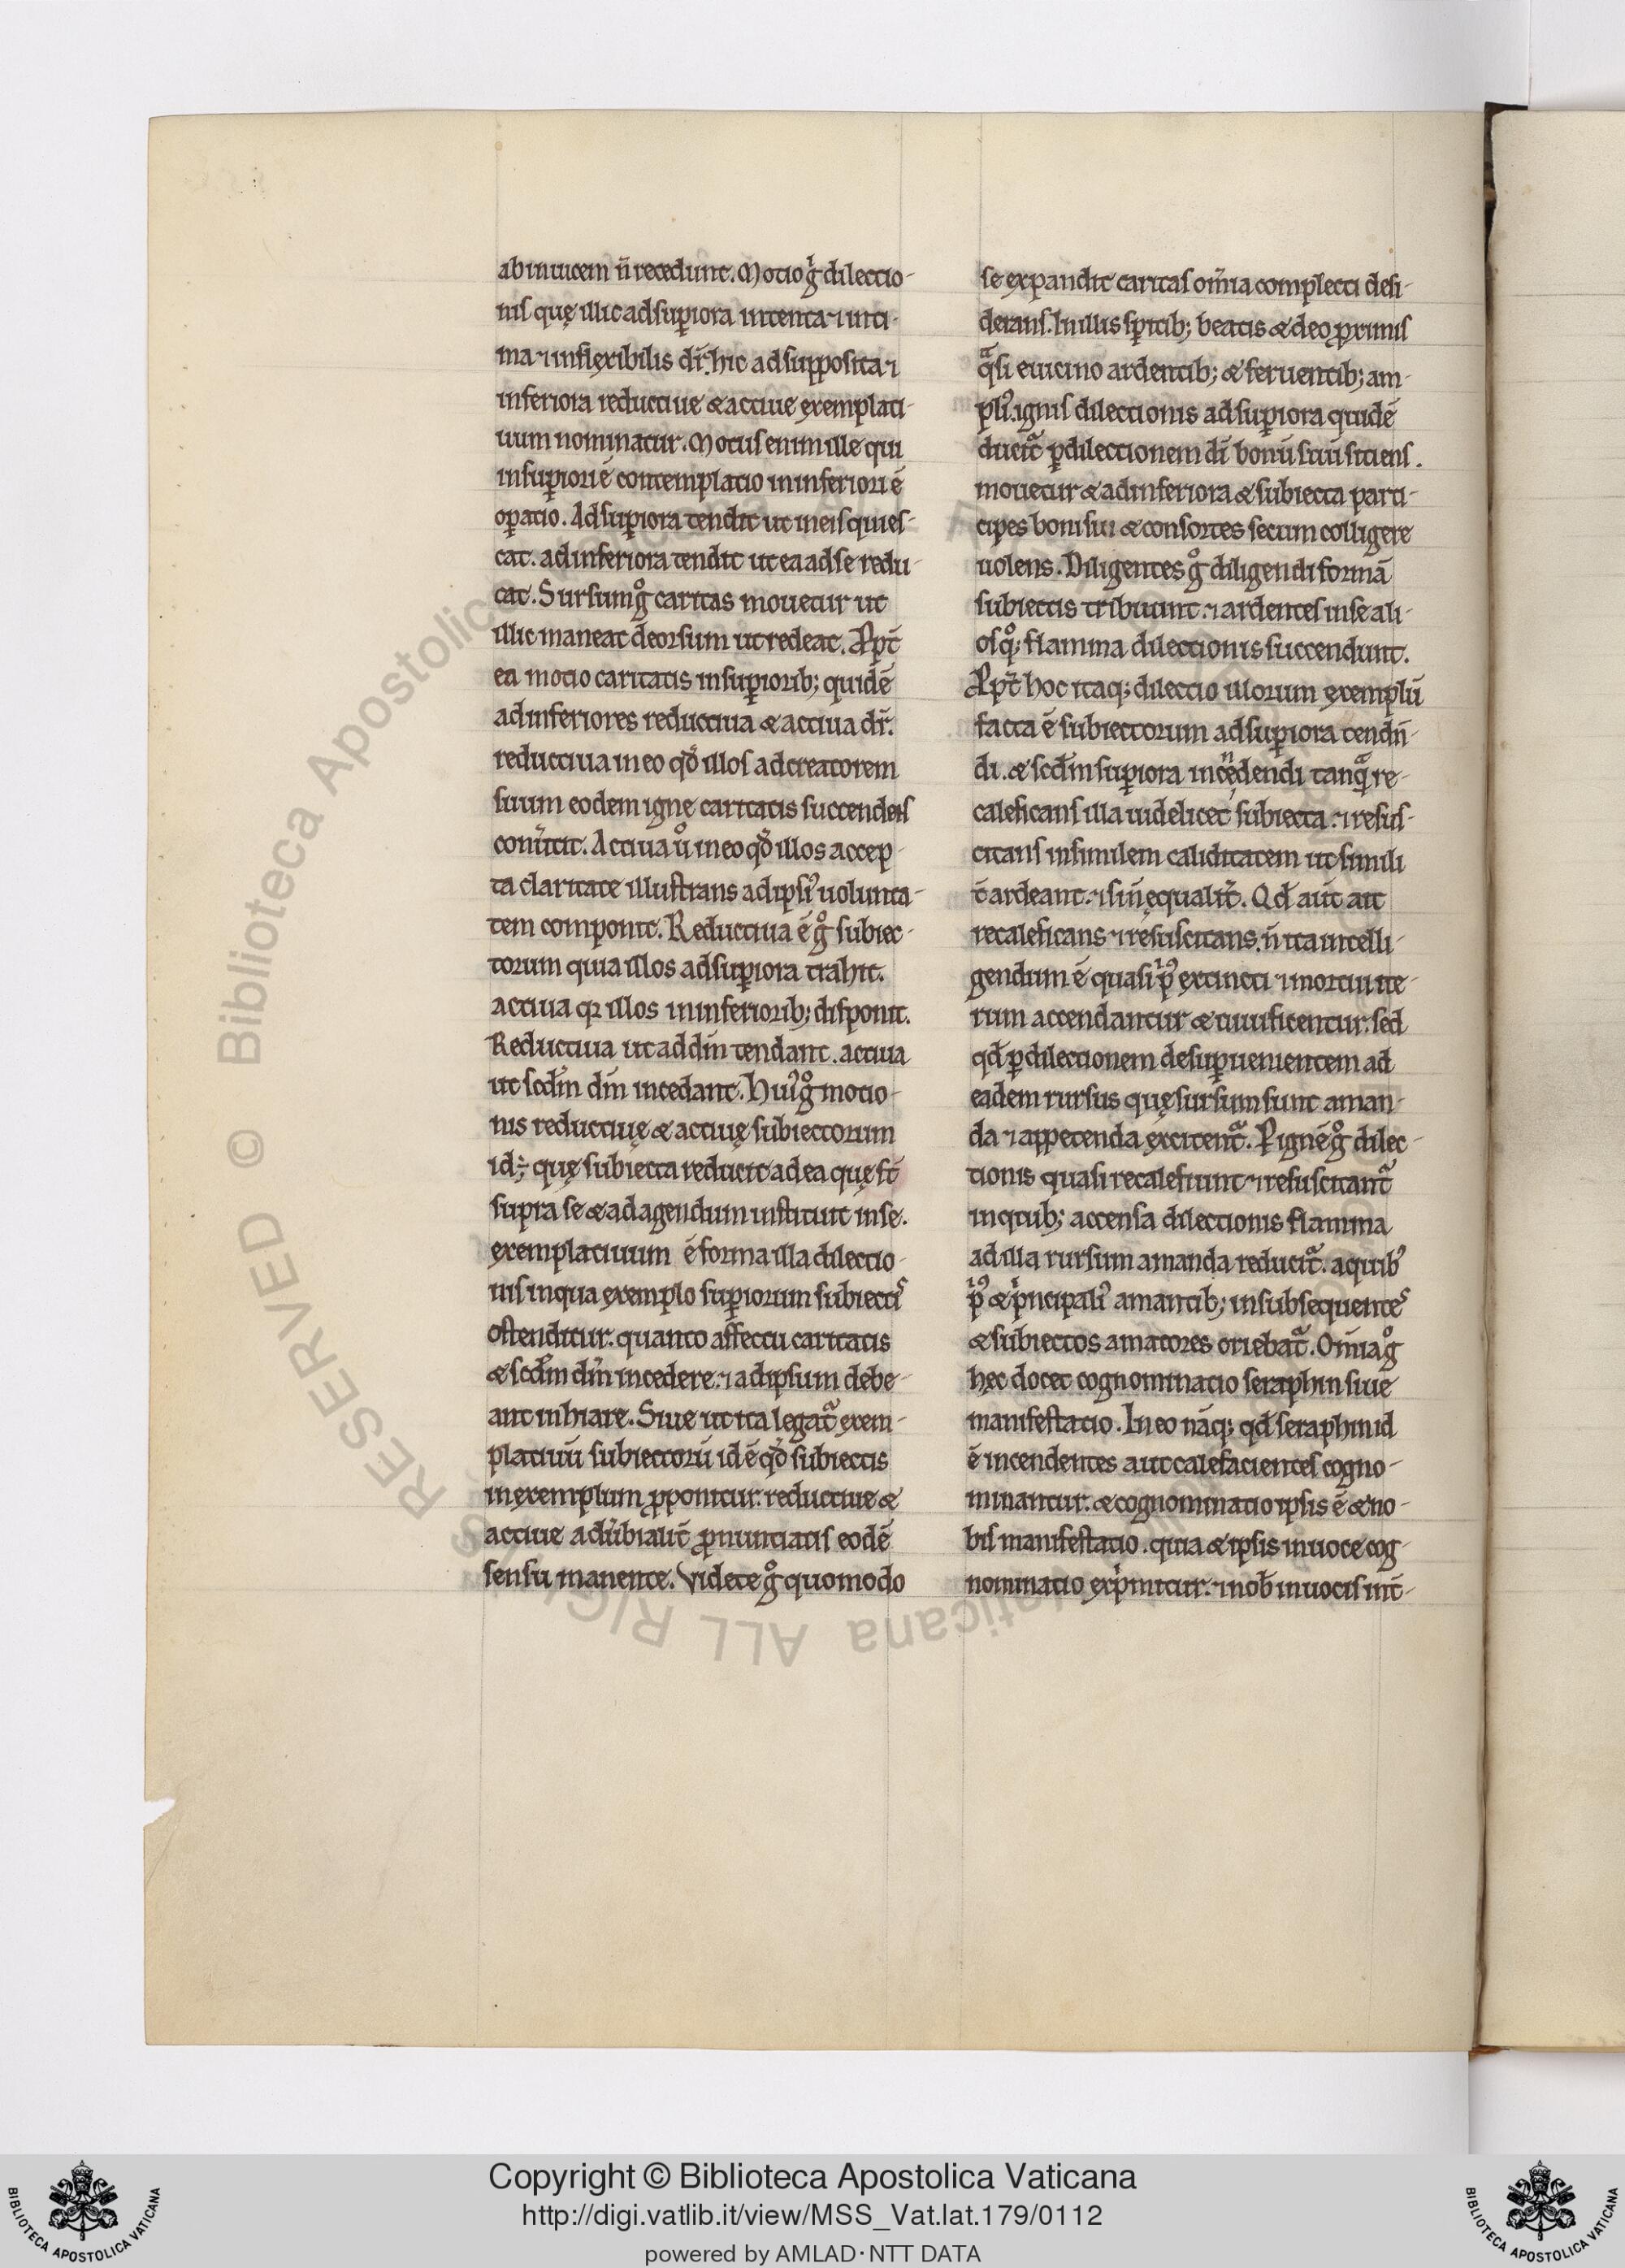 ab inuicem n̄ recedunt. Motio gͥ dilectio-
nis quę illic ad sup̱iora intenta ⁊ inti-
ma ⁊ inflexibilis dr̄. hic ad supposita ⁊
inferiora reductiue & actiue exemplati-
uum nominatur. Motus enim ille qui
in sup̱iori ē contemplatio in inferiori ē
op̱atio. Ad sup̱iora tendit ut in eis quies-
cat. ad inferiora tendit ut ea ad se redu-
cat. Sursum gͦ caritas mouetur ut
illic maneat deorsum ut redeat. Ꝓpt̄
ea motio caritatis in sup̱iorib; quidē
ad inferiores reductiua & actiua dr̄.
reductiua in eo qđ illos ad creatorem
suum eodem igne caritatis succendens
conūtit. Actiua uͦ in eo qđ illos accep-
ta claritate illustrans ad ipsiꝰ uolunta-
tem componit. Reductiua ē gͦ subiec-
torum quia illos ad sup̱iora trahit.
actiua qꝛ illos in inferiorib; disponit.
Reductiua ut ad dm̄ tendant. actiua
ut scđm dm̄ incedant. Huiꝰ gͦ motio-
nis reductiuę & actiuę subiectorum
id ÷ quę subiecta reducit ad ea quę st̄
supra se & ad agendum instituit in se.
exemplatiuum ē forma illa dilectio-
nis in qua exemplo sup̱iorum subiectis
ostenditur. quanto affectu caritatis
& scđm dm̄ incedere. ⁊ ad ipsum debe-
ant inhiare. Siue ut ita legat᷑ exem-
platiuū subiectorū id ē qđ subiectis
in exemplum ꝓponitur. reductiue &
actiue adūbialit̄ ꝓnuntiatis eodē
sensu manente. Videte gͦ quomodo
se expandit caritas om̄ia complecti desi-
derans. In illis sp̄itib; beatis & deo ꝓximis
qᵃsi e uicino ardentib; & feruentib; am-
pliꝰ. ignis dilectionis ad sup̱iora quidē
ducit᷑ p̱ dilectionem dī bonū suū sitiens.
mouetur & ad inferiora & subiecta parti-
cipes boni sui & consortes secum colligere
uolens. Diligentes gͦ diligendi formā
subiectis tribuunt. ⁊ ardentes in se ali-
os qͦ; flamma dilectionis succendunt.
Ꝓpt̄ hoc itaq; dilectio illorum exemplū
facta ē subiectorum ad sup̱iora tendn̄-
di. & scđm sup̱iora incedendi tanqᵃ re-
caleficans illa uidelicet subiecta. ⁊ resus-
citans in similem caliditatem ut simili
t̄ ardeant. ⁊ si n̄ equalit̄. Qđ aut̄ ait
recaleficans ⁊ resuscitans. n̄ ita intelli-
gendum ē quasi pͥꝰ extincti ⁊ mortui ite-
rum accendantur & uiuificentur. sed
qđ p̱ dilectionem desup̱ uenientem ad
eadem rursus quę sursum sunt aman-
da ⁊ appetenda excitent᷑. P̱ ignē gͦ dilec-
tionis quasi recalefiunt ⁊ resuscitant᷑
in qͥtib; accensa dilectionis flamma
ad illa rursum amanda reducit᷑. a quibꝰ
pͥꝰ & pͥncipaliꝰ amantib; in subsequentes
& subiectos amatores oriebat᷑. Om̄ia gͦ
hęc docet cognominatio seraphin siue
manifestatio. In eo nāq; qđ seraphin id
ē incendentes aut calefacientes cogno-
minantur. & cognominatio ipsis ē & no-
bis manifestatio. quia & ipsis in uoce cog-
nominatio expͥmitur. ⁊ nob̄ in uocis int̄-
Copyright © Biblioteca Apostolica Vaticana
http://digi.vatlib.it/view/MSS_Vat.lat.179/0112
powered by AMLAD·NTT DATA
BIBLIOTECA APOSTOLICA VATICANA
BIBLIOTECA APOSTOLICA VATICANA